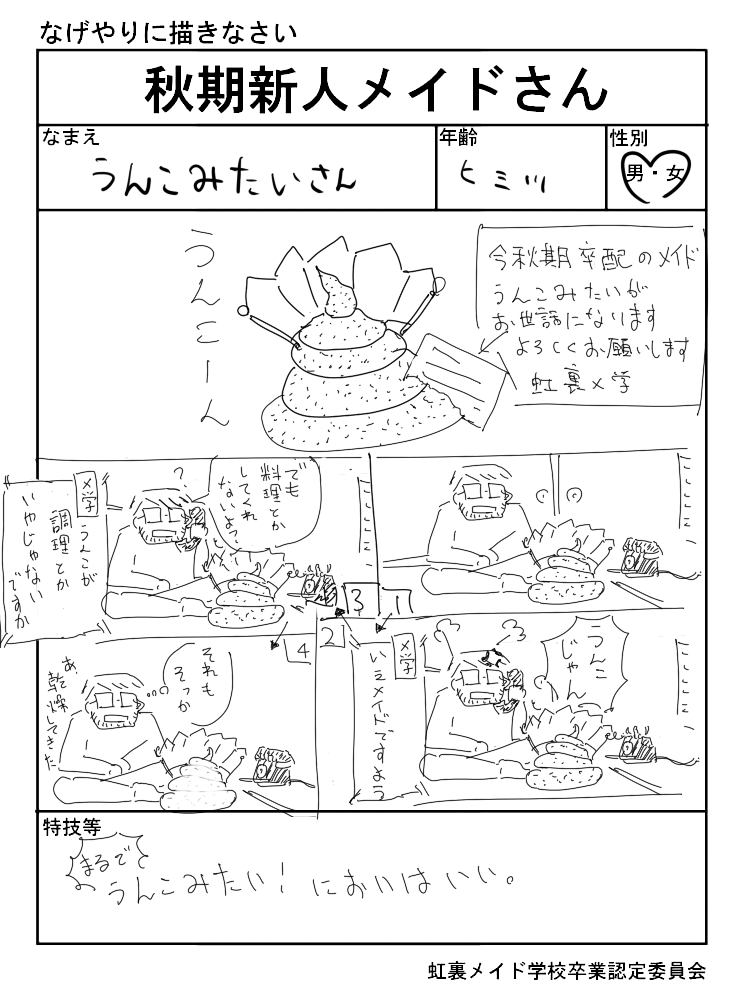 なげやりに描きなさい
秋期新人メイドさん
なまえ
うんこみたいさん
年齢
ヒミツ
性別
男・女
うんこーん
今秋期卒配のメイド
うんこみたいが
お世話になります
よろしくお願いします
虹裏メ学
1
2
うんこ
じゃん
メ学
いえメイドですよう
3
?
でも
料理とか
してくれ
ないよ?
メ学
うんこが
調理とか
いやじゃない
ですか
4
それも
そっか
あ、乾燥してきた
特技等
まるで
うんこみたい! においはいい。
虹裏メイド学校卒業認定委員会